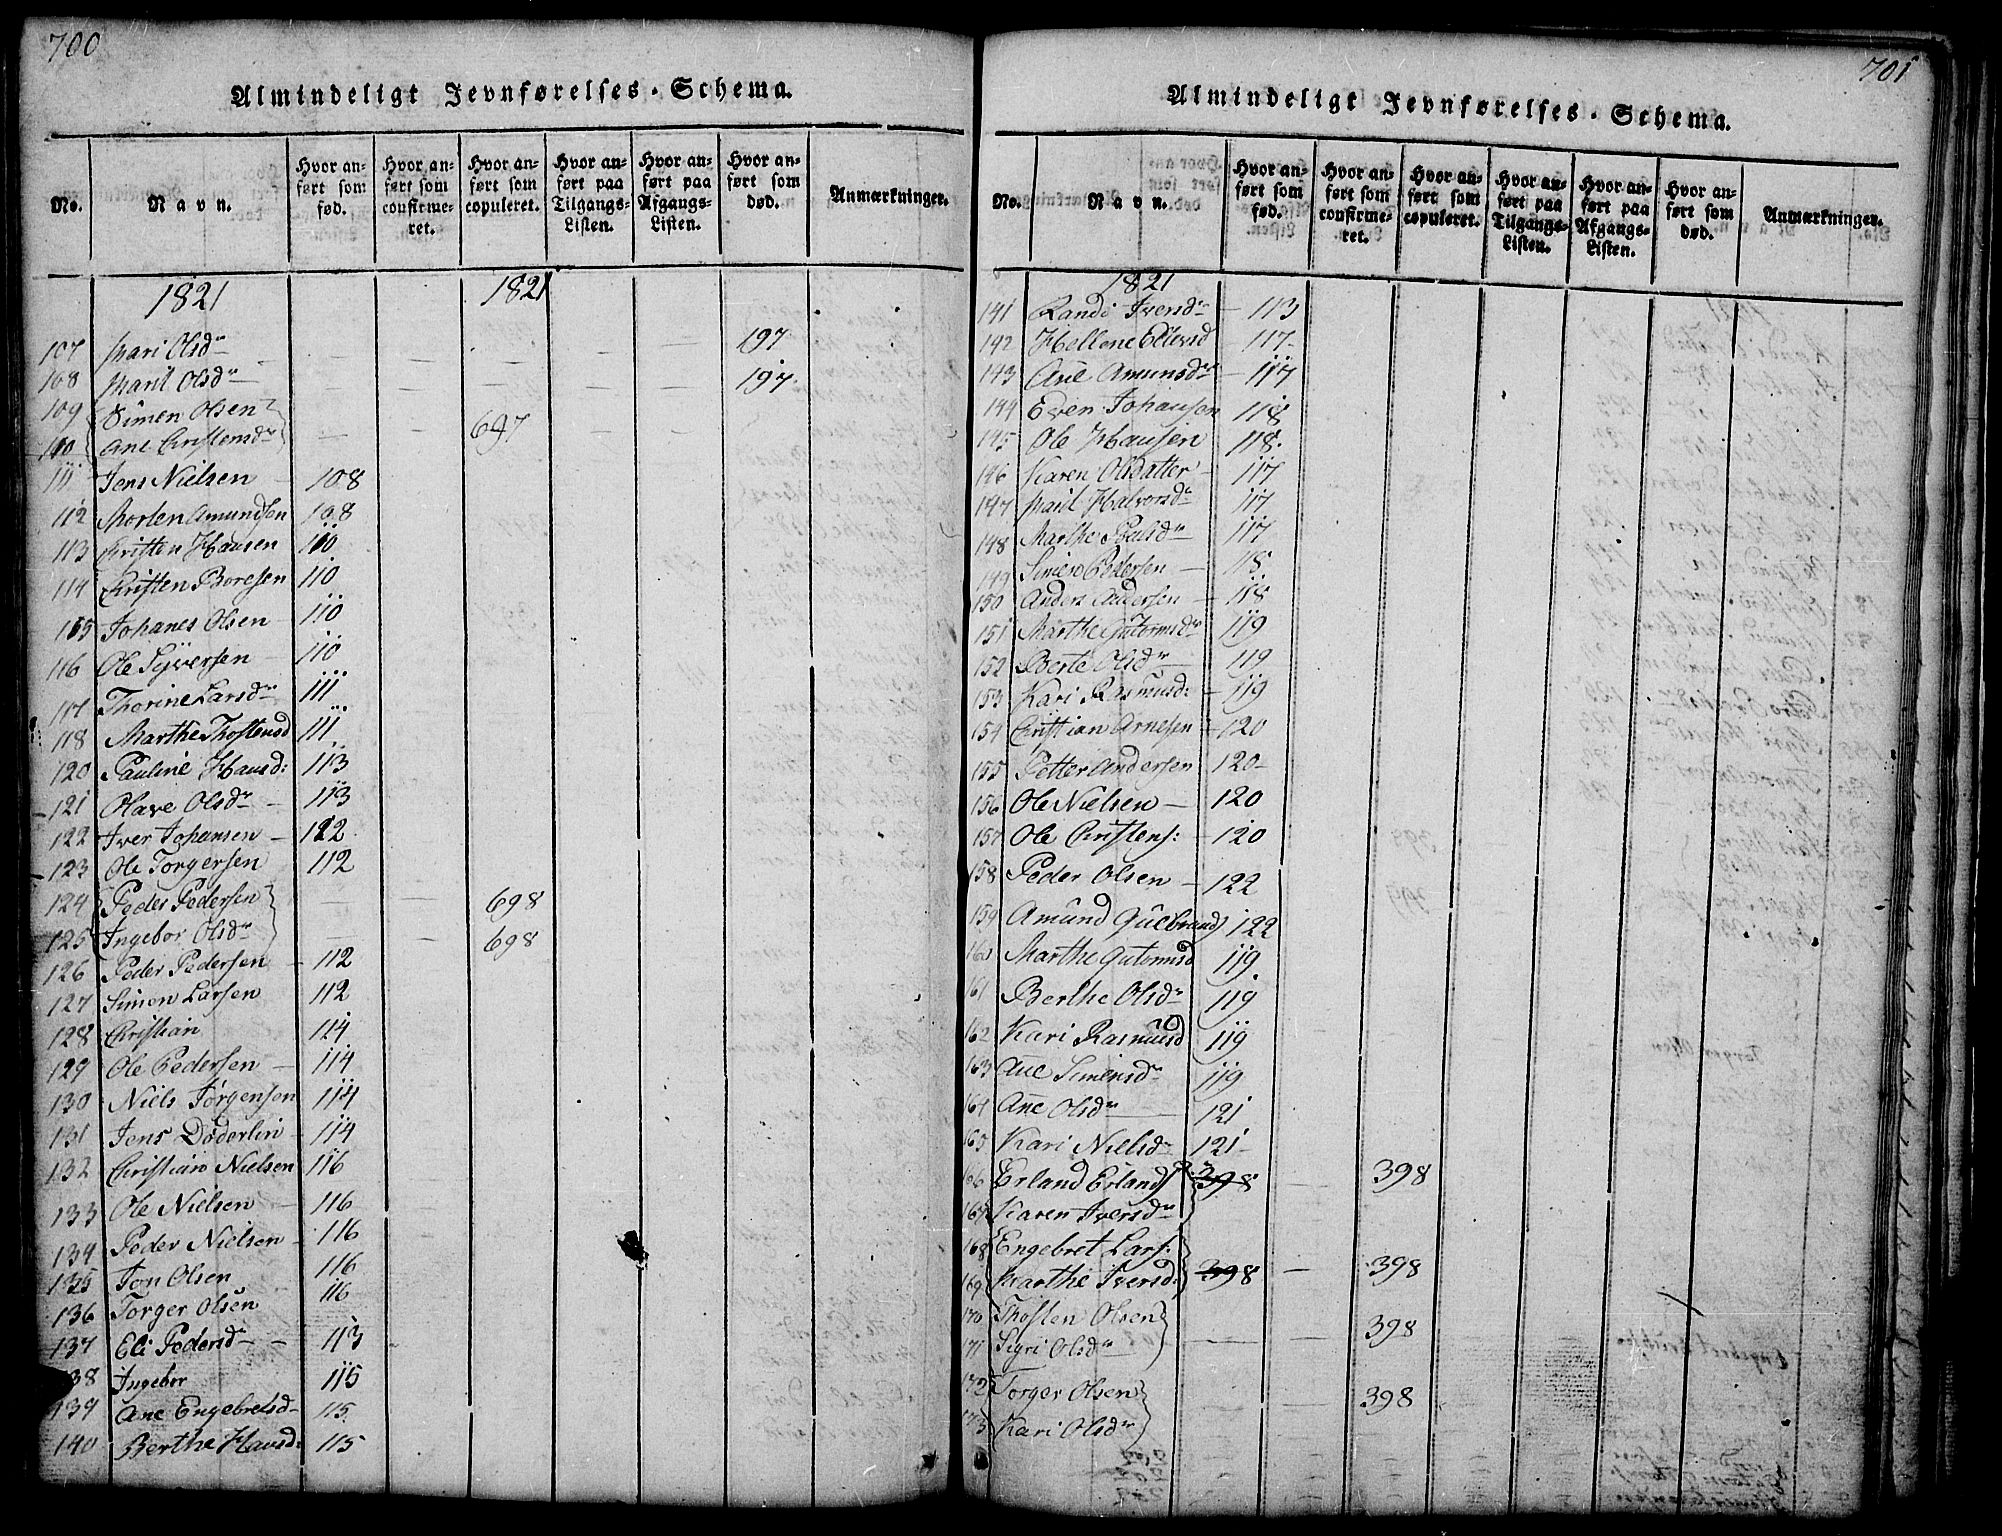 700
Almindeligt Jevnførelses-Schema.
No.
Navn.
Hvor anført som fød.
Hvor anført som confirmeret.
Hvor anført som copuleret.
Hvor anført paa Tilgangs-Listen.
Hvor anført paa Afgangs-Listen.
Hvor anført som død.
Anmærkninger.
1821 1821
107 Mari Olsdr 197
108 Marit Olsdr 197
109 Simen Olsen
110 Ane Christensdr 697
111 Jens Nielsen 108
112 Morten Amundsen 108
113 Christen Hansen 110
114 Christen Boresen 110
115 Johanes Olsen 110
116 Ole Syversen 110
117 Thorine Larsdr 111
118 Marthe Thostensd 111
120 Pauline Hansd: 113
121 Olave Olsdr 113
122 Iver Johansen 112
123 Ole Torgersen 112
124 Peder Pedersen 698
125 Ingebor Olsdr 698
126 Peder Pedersen 112
127 Simen Larsen 112
128 Christian 114
129 Ole Pedersen 114
130 Niels Jørgensen 114
131 Jens Døderlin 114
132 Christian Nielsen 116
133 Ole Nielsen 116
134 Peder Nielsen 116
135 Jon Olsen 116
136 Torger Olsen 116
137 Eli Pedersd 113
138 Ingebor 115
139 Ane Engebretsd 115
140 Berthe Hansd: 115
701
Almindeligt Jevnførelses-Schema.
No.
Navn.
Hvor anført som fød.
Hvor anført som confirmeret.
Hvor anført som copuleret.
Hvor anført paa Tilgangs-Listen.
Hvor anført paa Afgangs-Listen.
Hvor anført som død.
Anmærkninger.
1821
141 Randi Iversdr 113
142 Hellene Ellevsd 117
143 Ane Amunsdr 117
144 Even Johanson 118
145 Ole Hansen 118
146 Karen Olsdatter 117
147 Marit Halvorsdr 117
148 Marthe Poulsdr 117
149 Simen Pedersen 118
150 Anders Andersen 118
151 Marthe Gutormsdr 119
152 Berte Olsdr 119
153 Kari Rasmusd: 119
154 Christian Arnesen 120
155 Petter Andersen 120
156 Ole Nielsen 120
157 Ole Christens: 120
158 Peder Olsen 122
159 Amund Gulbrand 122
160 Marthe Gutormsd 119
161 Berthe Olsdr 119
162 Kari Rasmusd 119
163 Ane Simensdr 119
164 Ane Olsdr 121
165 Kari Nielsdr 121
166 Erland Erlands 398 398
167 Karen Iversdr
168 Engebret Lars:
169 Marthe Iversd: 398 398
170 Thosten Olsen 398
171 Sigri Olsdr
172 Torger Olsen 398
173 Kari Olsdr